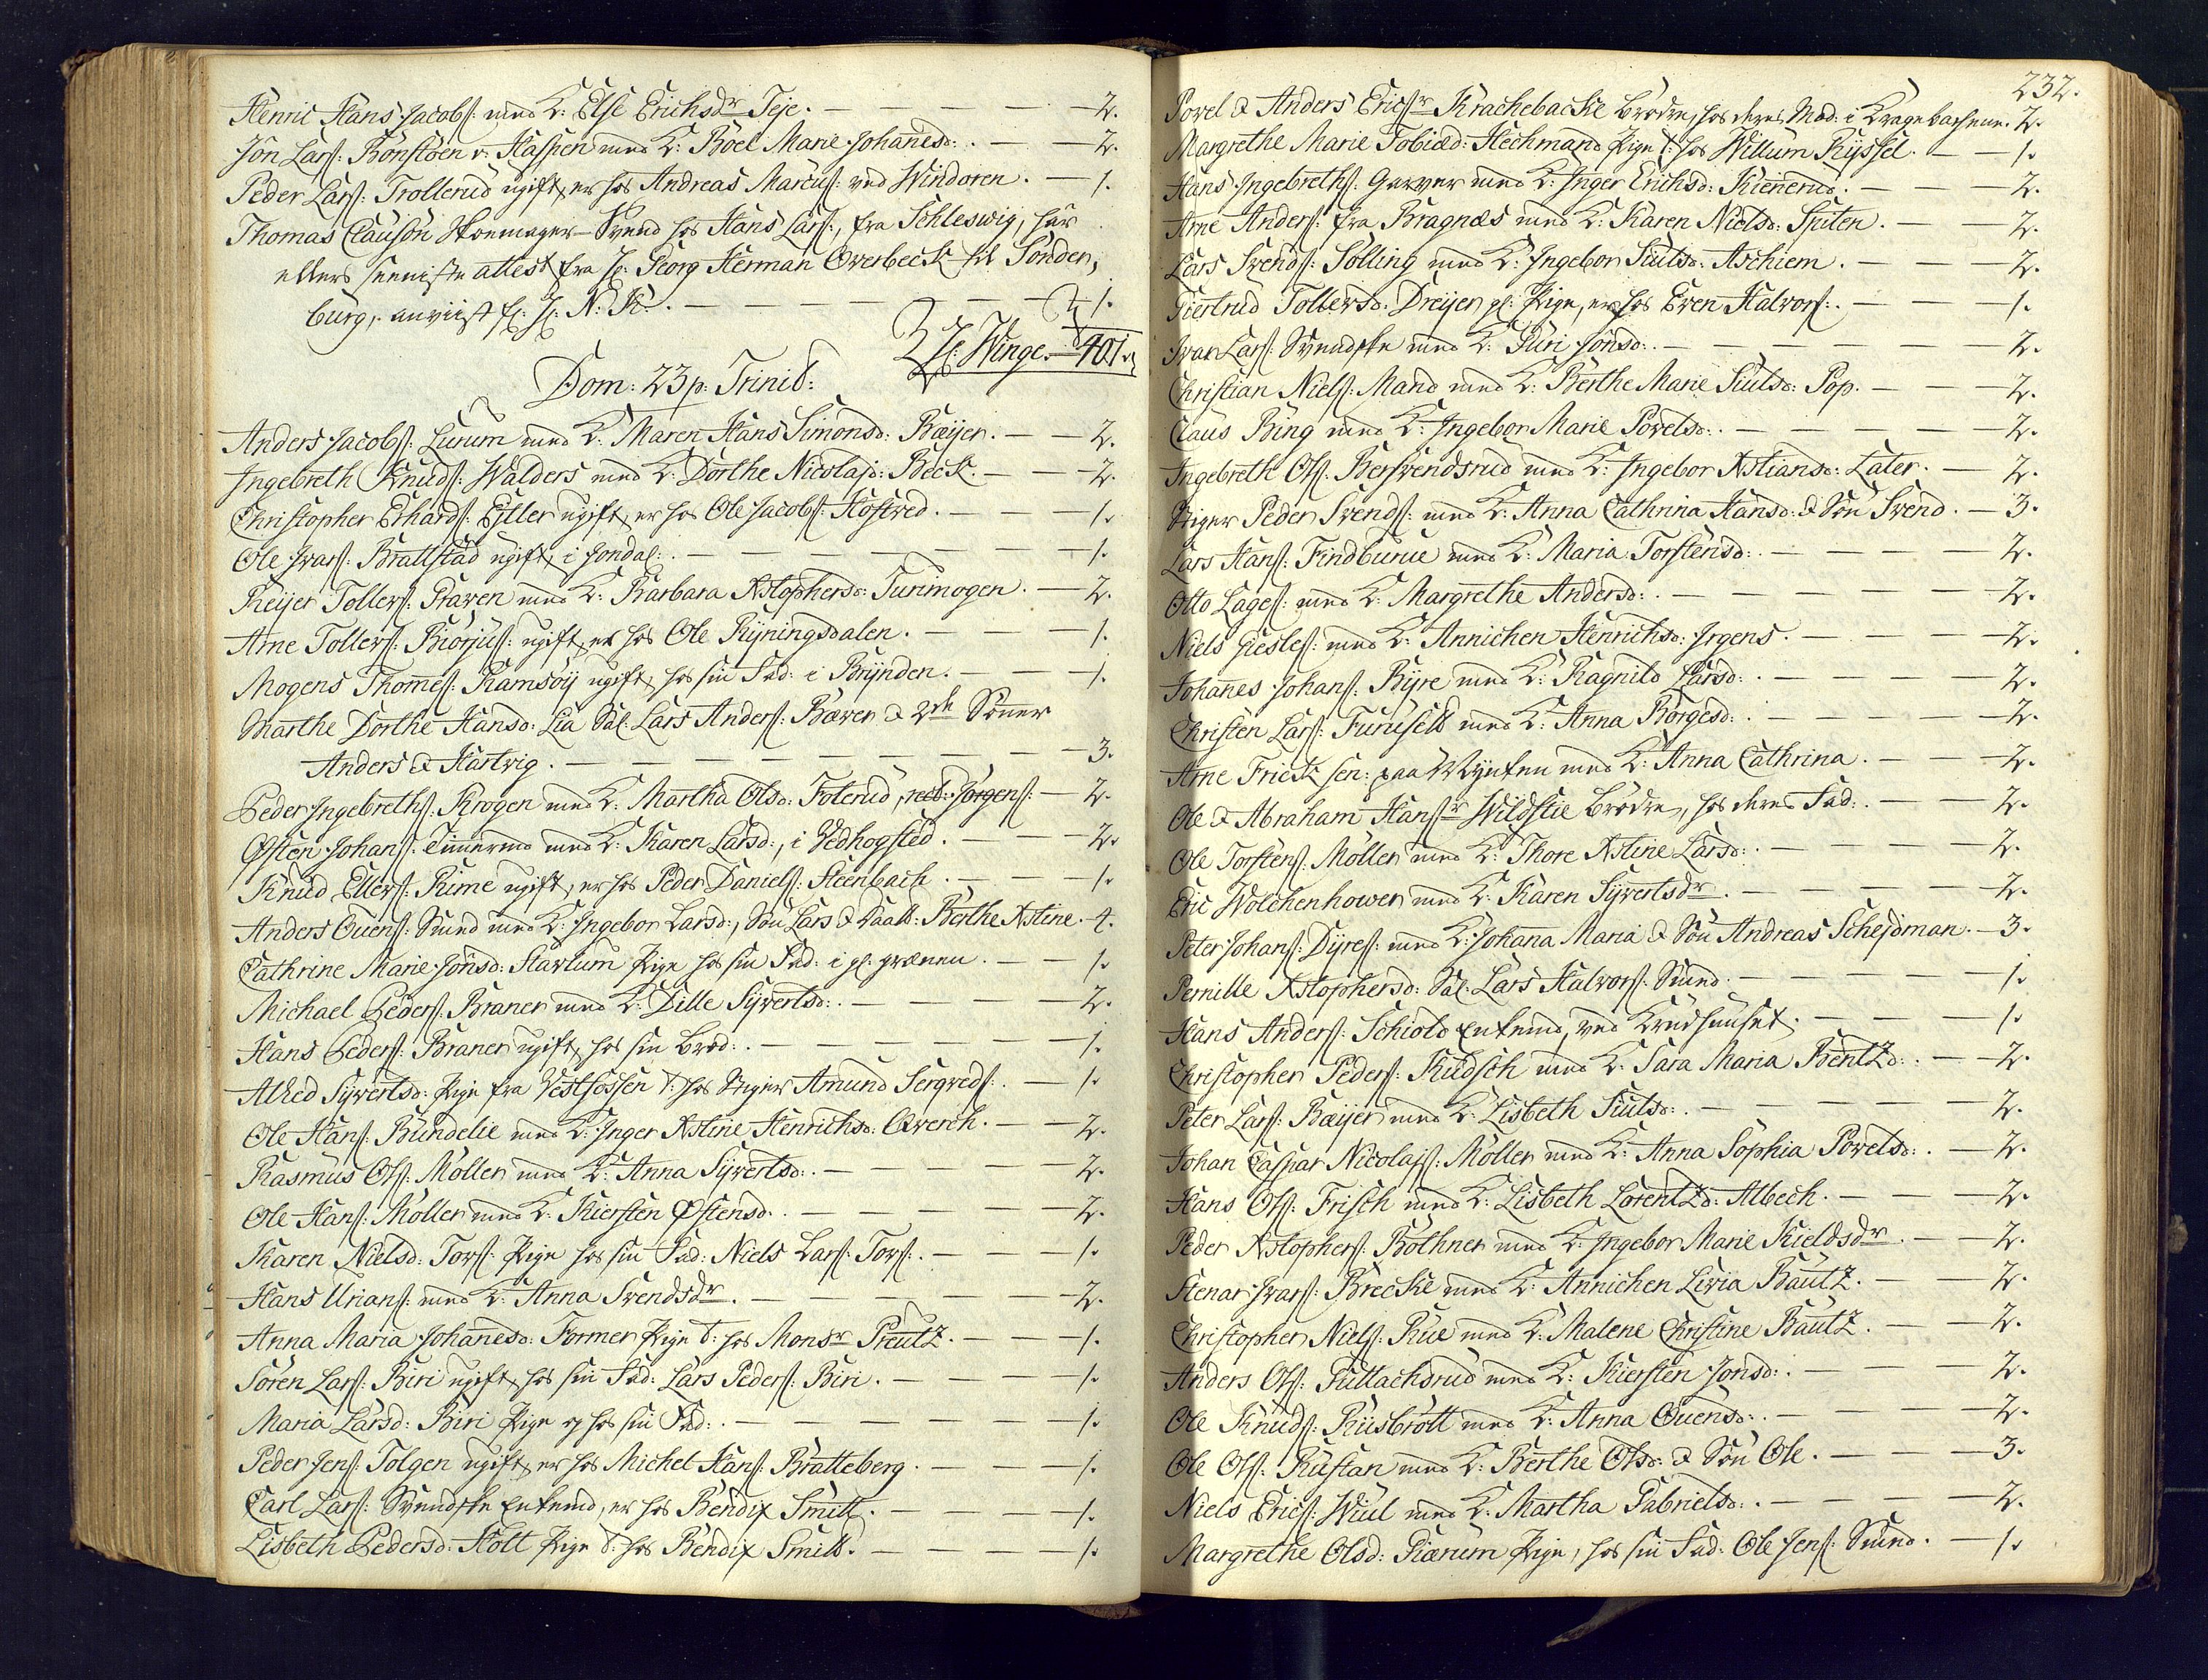 Henric Hans Jacobs: med K: Else Erichsdr Teje. — 2.
Jon Lars: Rönstöen v. Hassien med K: Boel Marie Johañesd: — 2.
Peder Lars: Trollerud ugift, er hos Andreas Marcus: ved Windoren. — 1.
Thomas Clauson Skoemager-Svend hos Hans Lars:, fra Schleswig, har
ellers seeniste attest fra H: Georg Herman Overbeck til Sonder,
burg, anviist f: H: N: K: — 1.
H: Winge. — 401.
Dom: 23 p: Trinit:
Anders Jacobs: Lurum med K: Maren Hans Simonsd: Bæijer. — 2.
Ingebreth Knuds: Walders med K: Dorthe Nicolajd: Beck. — 2.
Christopher Erhards: Eiller ugift, er hos Ole Jacobs: Hostved. — 1.
Ole Ivars: Brattstad ugift, i Jondal: — 1.
Reijer Tollers: Praven med K: Barbara Xstophersd: Turimogen. — 2.
Arne Tollers: Biörjus: ugift, er hos Ole Ryningsdalen. — 1.
Mogens Thomes: Ramsöij ugift, hos sin Fad: i Brynden. — 1.
Marthe Dorthe Hansd: Lia Sal: Lars Anders: Bæver & 2de Sönner
Anders & Hartvig. — 3.
Peder Ingebreths: Krogen med K: Martha Olsd: Foterud, red: Jörgens: — 2.
Östen Johans: Timermd med K: Karen Larsd:, i Vedhogsted. — 2.
Knud Ellers: Rime ugift, er hos Peder Daniels: Steenbach. — 1.
Anders Ouens: Smed med K: Ingebor Larsd:, Sön Lars & Daatt: Berthe Xstine. — 4.
Cathrine Marie Jönsd: Starlum Pige hos sin Fad: i gl: grænen. — 1.
Michael Peders: Braner med K: Dille Syvertsd: — 2.
Hans Peders: Braner ugift, hos sin Brod: — 1.
Alhed Syvertsd: Pige fra Vestfossen t: hos Stiger Amund Sergveds: — 1.
Ole Hans: Bundelie med K: Inger Xstine Henrichsd: Qværch. — 2.
Rasmus Ols: Möller med K: Anna Syvertsd: — 2.
Ole Hans: Möller med K: Kiersten Östensd: — 2.
Karen Nielsd: Tors: Pige hos sin Fad: Niels Lars: Tors: — 1.
Hans Urians: med K: Anna Svendsdr. — 2.
Anna Maria Johañesd: Former Pige t: hos Monsr Preutz. — 1.
Sören Lars: Biri ugift, hos sin Fad: Lars Peders: Biri. — 1.
Maria Larsd: Biri Pige og hos sin Fad: — 1.
Peder Jens: Tolgen ugift, er hos Michel Hans: Bratteberg. — 1.
Carl Lars: Svendske Enkemd, er hos Bendix Smitt. — 1.
Lisbeth Pedersd: Holt Pige t: hos Bendix Smitt. — 1.
232.
Povel & Anders Ericsr Krachebacke brödre, hos deres Mod: i Kragebachene. 2.
Margrethe Marie Tobiæd: Hechmand Pige t: hos Willum Ryssel. — 1.
Hans Ingebreths: Garver med K: Inger Erichsd: Kienerud. — 2.
Arne Anders: fra Bragnæs med K: Karen Nielsd: Spiten. — 2.
Lars Svends: Solling med K: Ingebor Siulsd: Aschiem. — 2.
Giertrud Tollevsd: Dreijer gl: Pige, er hos Even Halvors: — 1.
Ivar Lars: Svendske med K: Guri Jonsd: — 2.
Christian Niels: Mand med K: Berthe Marie Siulsd: Pop. — 2.
Claus Bing med K: Ingebor Marie Povelsd: — 2.
Ingebreth Ols: Bersvendsrud med K: Ingebor Xstiansd: Later. — 2.
Stiger Peder Svends: med K: Anna Cathrina Hansd: & Sön Svend. — 3.
Lars Hans: Findburue med K: Maria Torstensd: — 2.
Otto Lages: med K: Margrethe Andersd: — 2.
Niels Giesles: med K: Annichen Henrichsd: Irgens. — 2.
Johañes Johans: Byre med K: Ragnild Larsd: — 2.
Christen Lars: Furuseth med K: Anna Borgesd: — 2.
Arne Frick sen: paa Mynten med K: Anna Cathrina. — 2.
Ole & Abraham Hansr Wildstie brödre, hos deres Fad: — 2.
Ole Torstens: Möller med K: Thore Xstine Larsd: — 2.
Eric Wolchenhower med K: Karen Syvertsdr. — 2.
Peter Johans: Dyres: med K: Johanna Maria & Sön Andreas Schejdman. — 3.
Pernille Xstophersd: Sal: Lars Halvors: Smed. — 1.
Hans Anders: Schiold Enkemd, ved Krudhuuset. — 1.
Christopher Peders: Kudsch med K: Sara Maria Bentzd: — 2.
Peter Lars: Bæijer med K: Lisbeth Siulsd: — 2.
Johan Caspar Nicolajs: Möller med K: Anna Sophia Povelsd: — 2.
Hans Ols: Frisch med K: Lisbeth Lorentzd: Albech. — 2.
Peder Xstophers: Böthner med K: Ingebor Marie Kieldsdr. — 2.
Stenar Ivars: Brecke med K: Annichen Livia Bautz. — 2.
Christopher Niels: Rue med K: Malene Christine Bautz. — 2.
Anders Ols: Gullachsrud med K: Kiersten Jonsd: — 2.
Ole Knuds: Ruusbrott med K: Anna Ouensd: — 2.
Ole Ols: Rustan med K: Berthe Olsd: & Sön Ole. — 3.
Niels Erics: Wiul med K: Martha Gabrielsd: — 2.
Margrethe Olsd: Giærum Pige, hos sin Fad: Ole Jens: Smed. — 1.